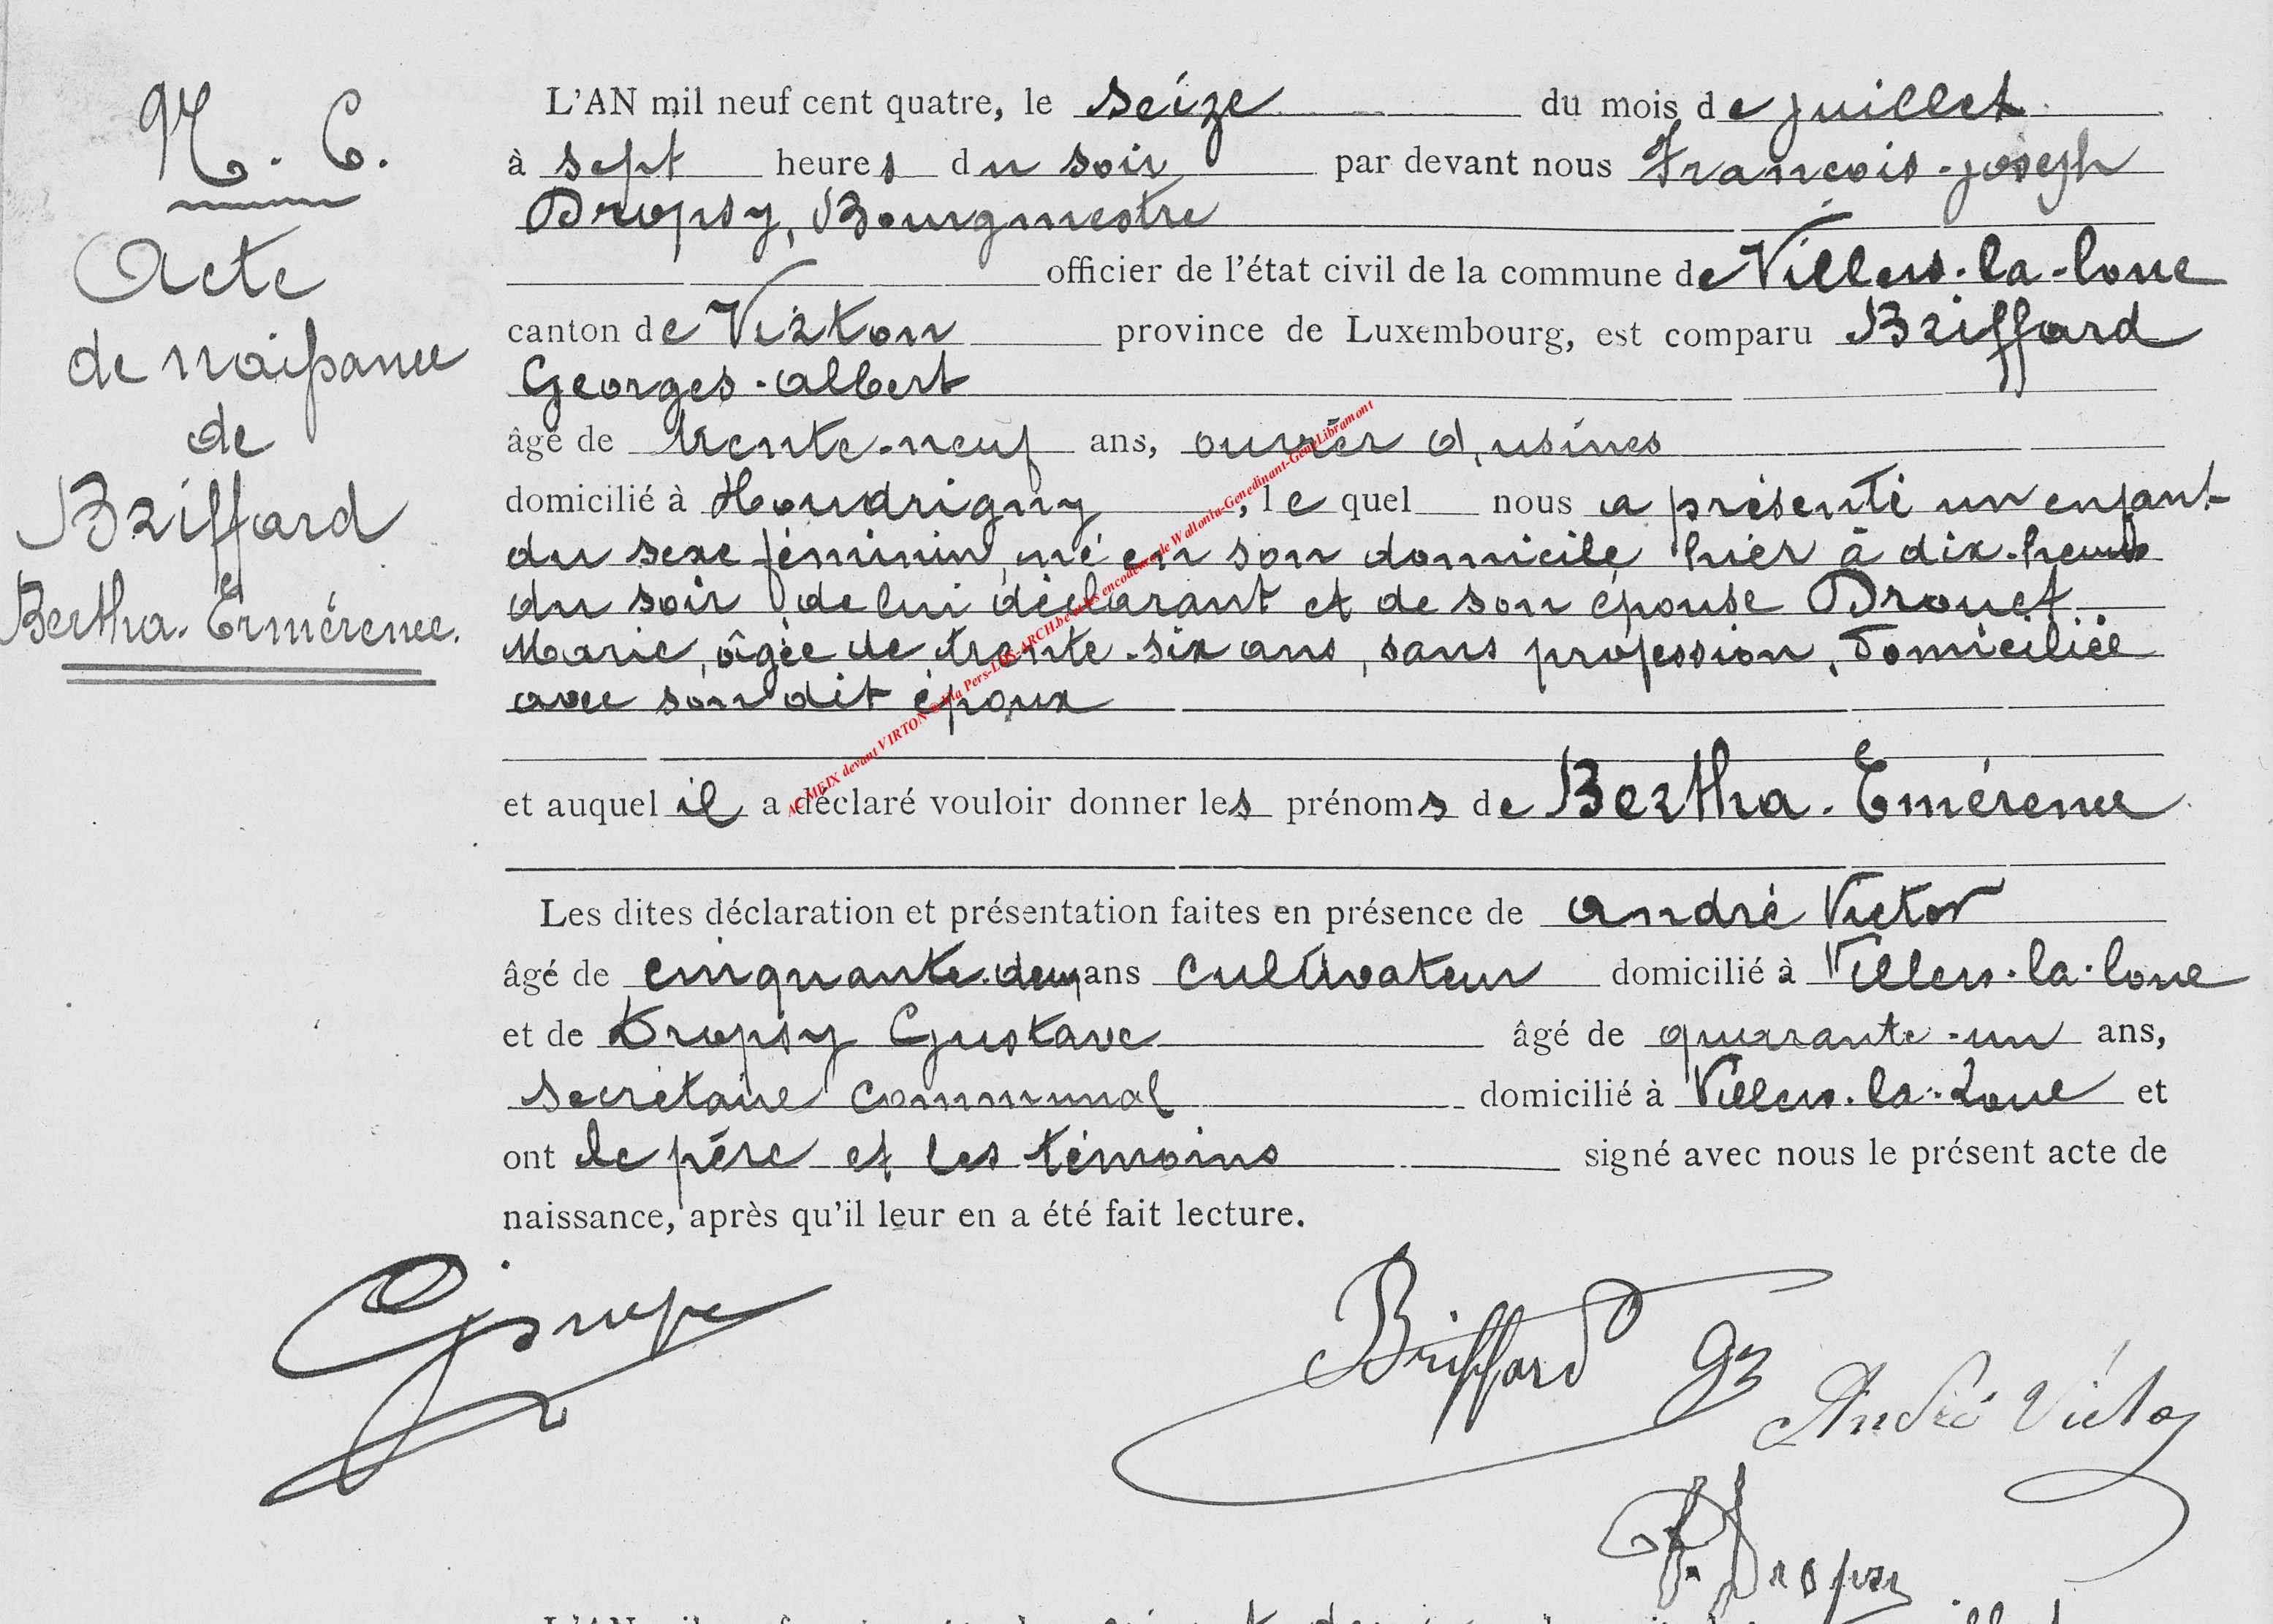 N. 6.
Acte
de naissance
de
Briffard
Bertha. Ermérence.
L'AN mil neuf cent quatre, le seize du mois de juillet
à sept heures du soir par devant nous François-Joseph
Dropsy, Bourgmestre
officier de l'état civil de la commune de Villers-la-loue
canton de Virton province de Luxembourg, est comparu Briffard
Georges-albert
âgé de trente-neuf ans, ouvrier d'usines
domicilié à Houdrigny, lequel nous a présenté un enfant
du sexe féminin, né en son domicile hier à dix-heures
du soir de lui déclarant et de son épouse Drouet
Marie, âgée de trente-six ans, sans profession, domiciliée
avec son dit époux
et auquel il a déclaré vouloir donner les prénoms de Bertha-Emérence
Les dites déclaration et présentation faites en présence de andré Victor
âgé de cinquante-deux ans cultivateur domicilié à Villers-la-loue
et de Dropsy Gustave âgé de quarante-un ans,
secrétaire communal domicilié à Villers-la-Loue et
ont le père et les témoins signé avec nous le présent acte de
naissance, après qu'il leur en a été fait lecture.
Briffard
André Victor
Dropsy
ACMEIX devant VIRTON